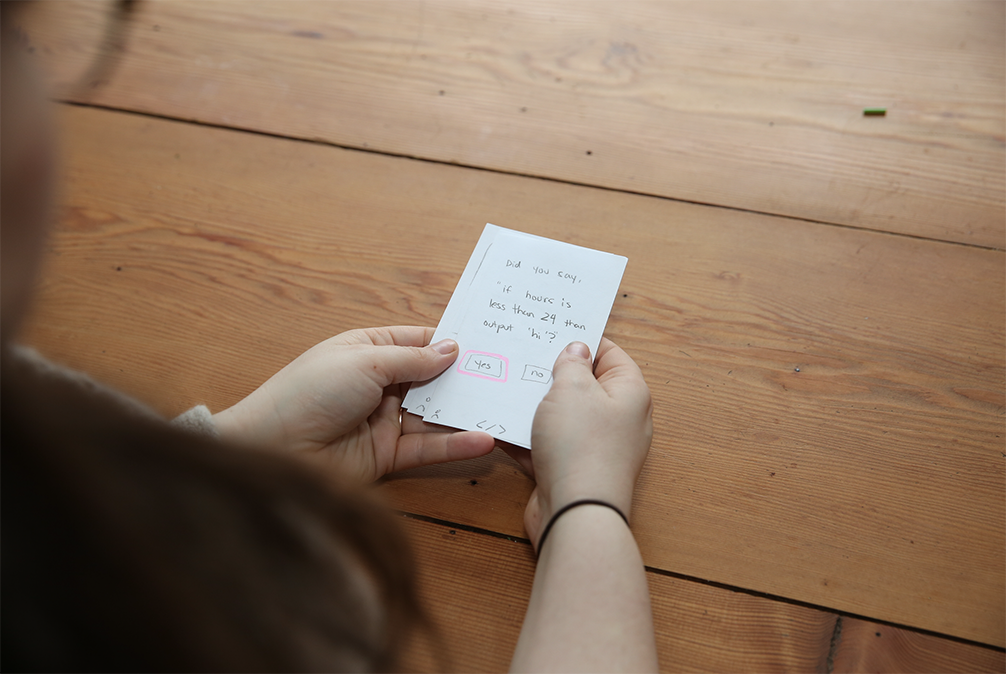 Did you say,
"if hours is
less than 24 than
output 'hi'"?
yes no
</>